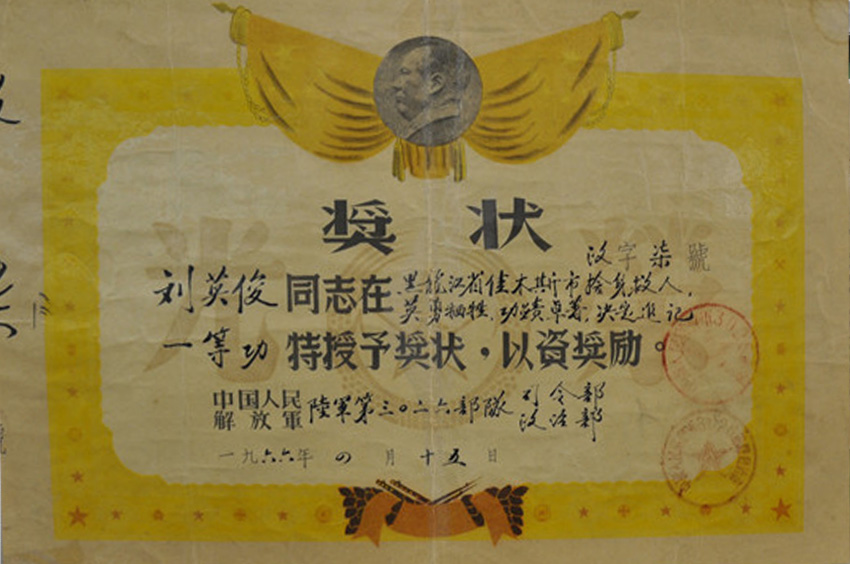 奖状
汉字柒號
刘英俊同志在黑龙江省佳木斯市捨身救人,
英勇牺牲,功绩卓著,决定追记
一等功特授予奖状,以资奖励。
中国人民解放軍陸軍第三〇二六部隊司令部
政治部
一九六六年四月十五日